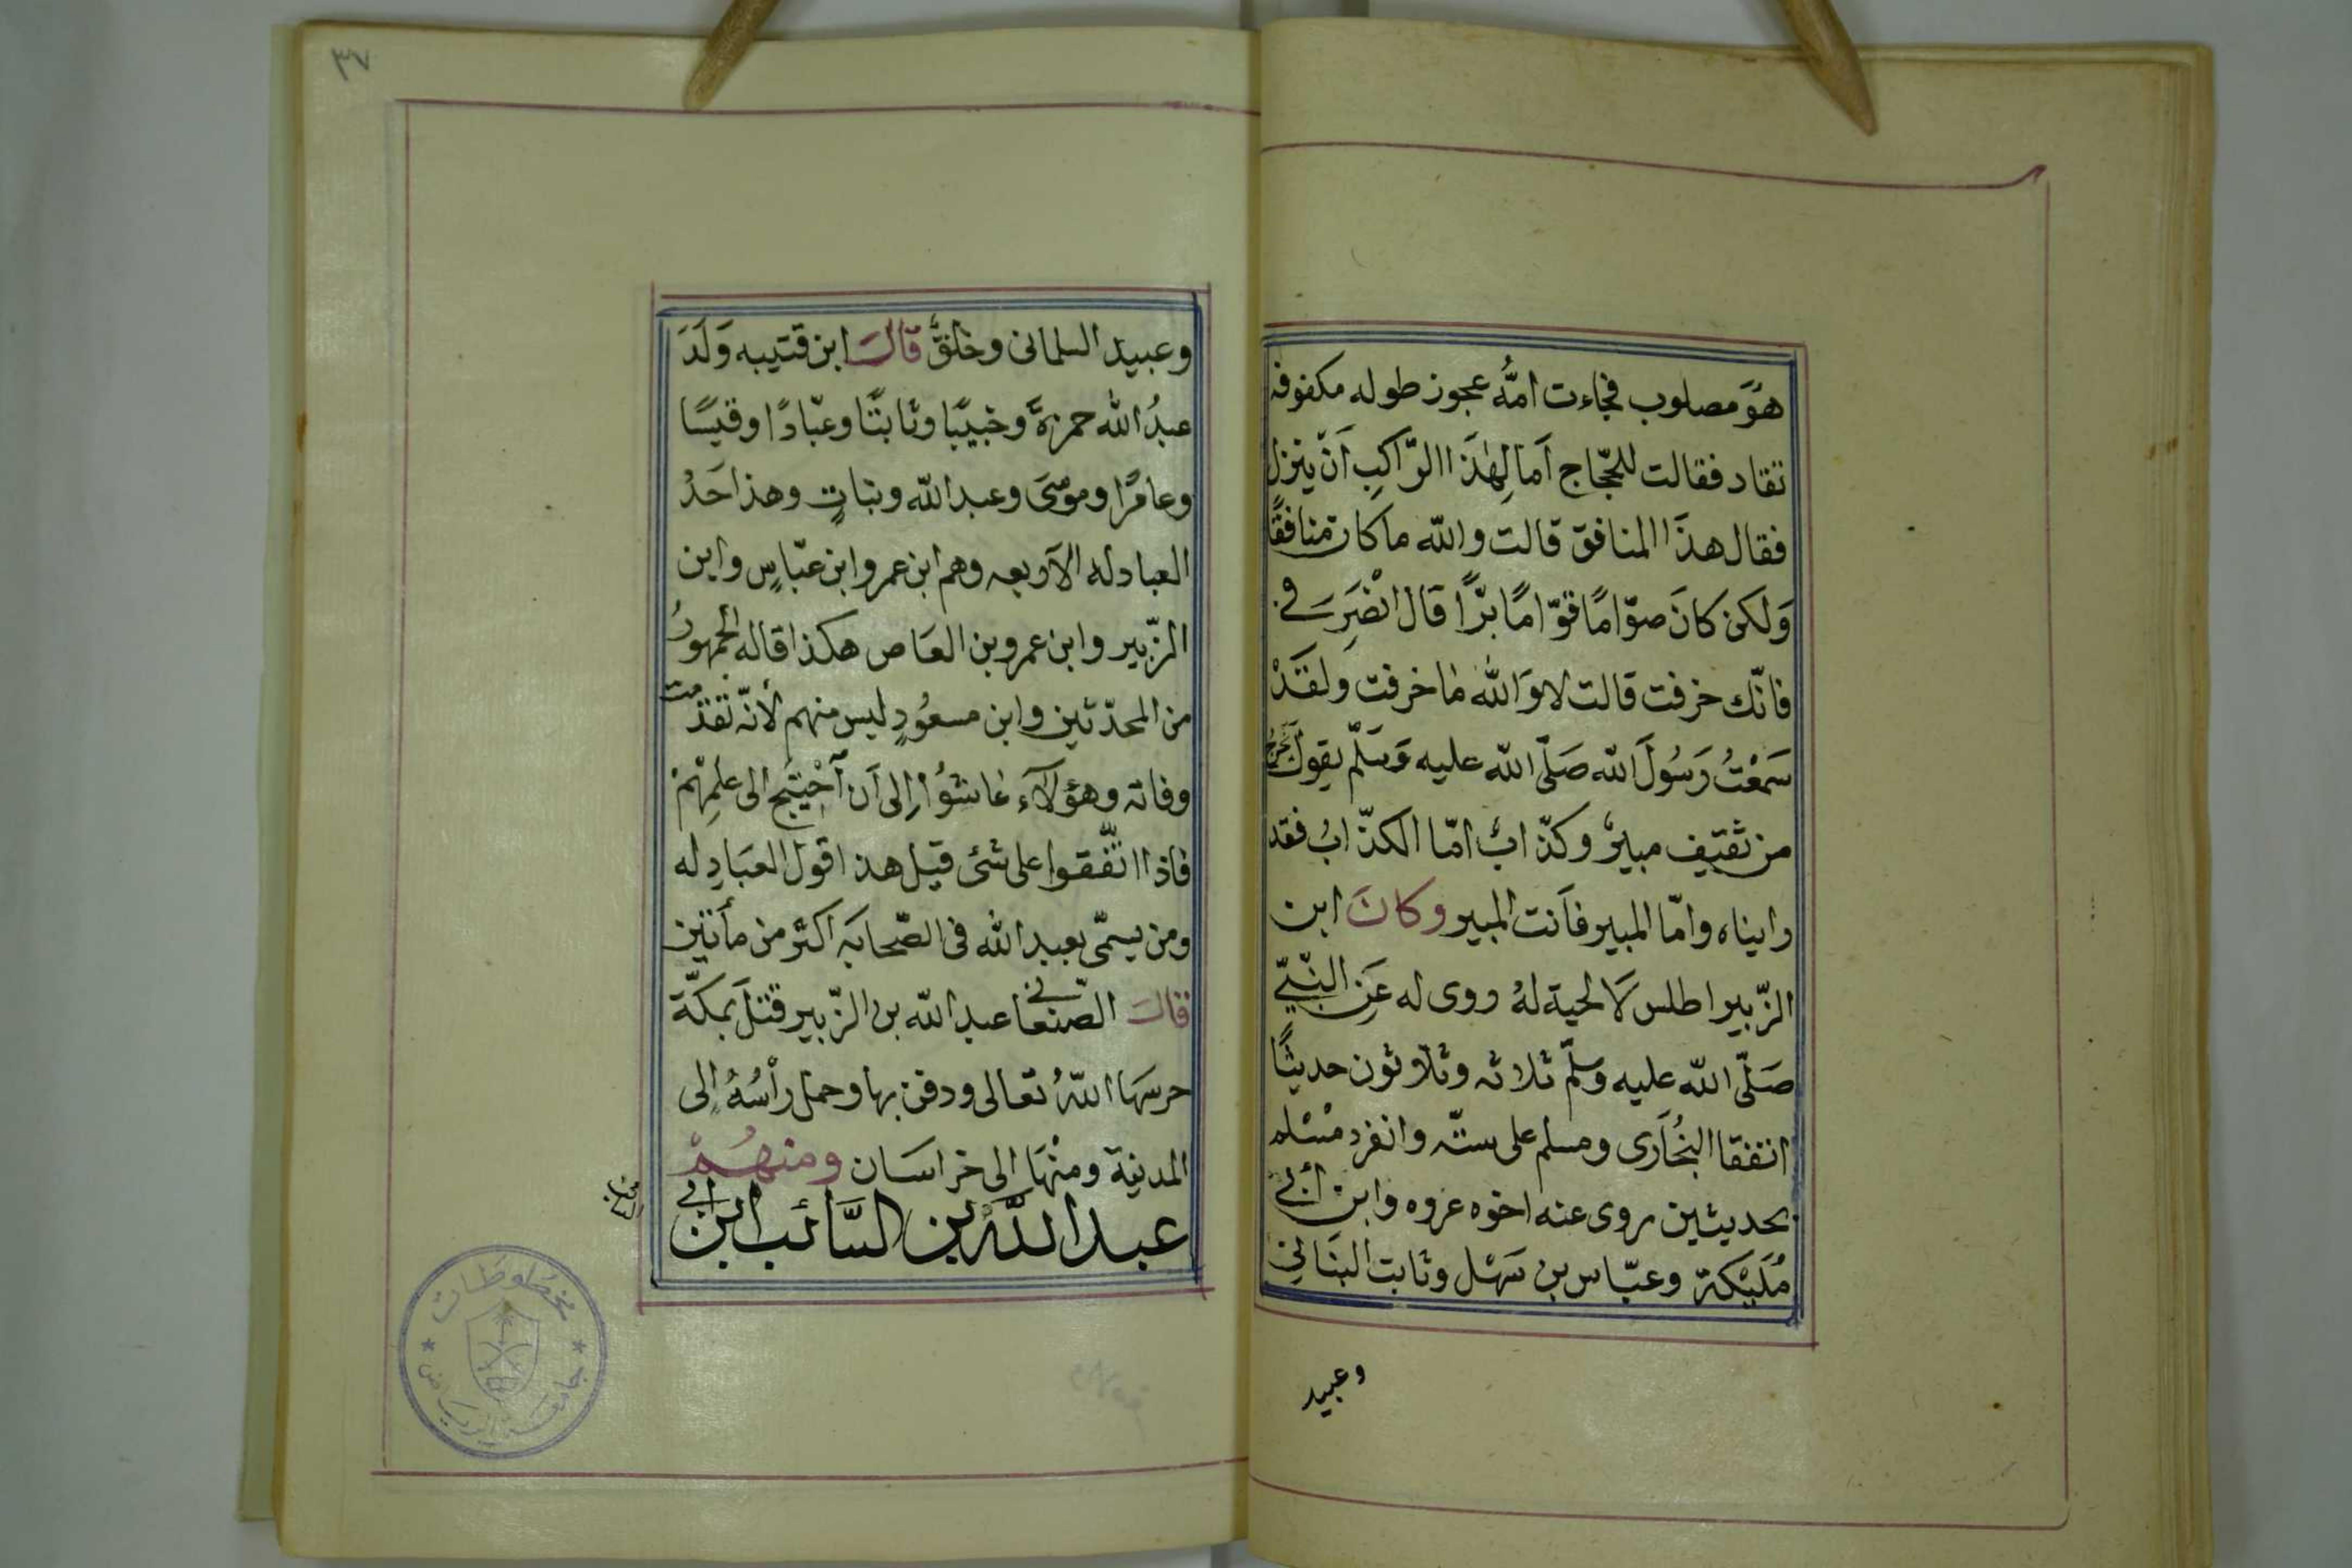 هُوَ مصلوب فجاءت امُّه عجوز طوله مكفوفه
تقاد فقالت للحجّاج اَما لِهٰذَا الرّاكِبِ اَنْ ينزل
فقال هذَا المنافق قالت والله ما كان منافقًا
وَلكن كانَ صوّامًا قوّامًا برًّا قال انْصَرِ فى
فانّك خرفت قالت لا وَالله ما خرفت ولقَدْ
سَمعْتُ رَسُولَ الله صَلّى الله عليه وَسَلّم يقول يخرج
من ثقيف مبيرٌ وكذّابٌ امّا الكذّابُ فقد
رايناه وامّا المبير فاَنت المبير وكانَ ابن
الزّبير اطلس لَا لحية لهُ روى له عَنِ النّبىّ
صَلّى الله عليه وسَلّم ثلاثه وثلاثون حديثًا
اتفقا البُخَارى ومسلم على ستّه وانفرد مسْلم
بحديثين روى عنه اخوه عروه وابن أبى
مُلَيْكة وعبّاس بن سَهْل وثابت البنَانى
وعبيد
٣٧
وعبيد السلمانى وخلقٌ قالَ ابن قتيبه وَلَدَ
عبدُ الله حمزةَ وخبيبًا وثابتًا وعبّادًا وقيسًا
وعامرًا وموسَى وعبد الله وبناتٍ وهذا حَدُ
العبادله الاَربعه وهم ابن عمر وابن عبّاسٍ وابن
الزّبير وابن عمرو بن العَاص هكذا قاله الجمهورُ
من المحدّثين وابن مسعُودٍ ليس منهم لأنّه تقدّمت
وفاته وهؤلَآء عَاشُوْا إلى اَن اُحْتِيج الى عِلمِهْمْ
فاذا اتّفقوا على شئ قيل هذا قول العبَادِله
ومن يسمّى بعبد الله فى الصّحابه اكثر من مأتين
قالَ الصّنعانى عبد الله بن الزّبير قتلَ بمكّة
حرسَها اللهُ تعالى ودفن بها وحمل رأسُهُ إلى
المدينة ومنْهَا الى خراسَان ومنهُمْ
عبد الله بن السَّائب ابن أبى
السائب
مخطوطات
جامعة الرياض